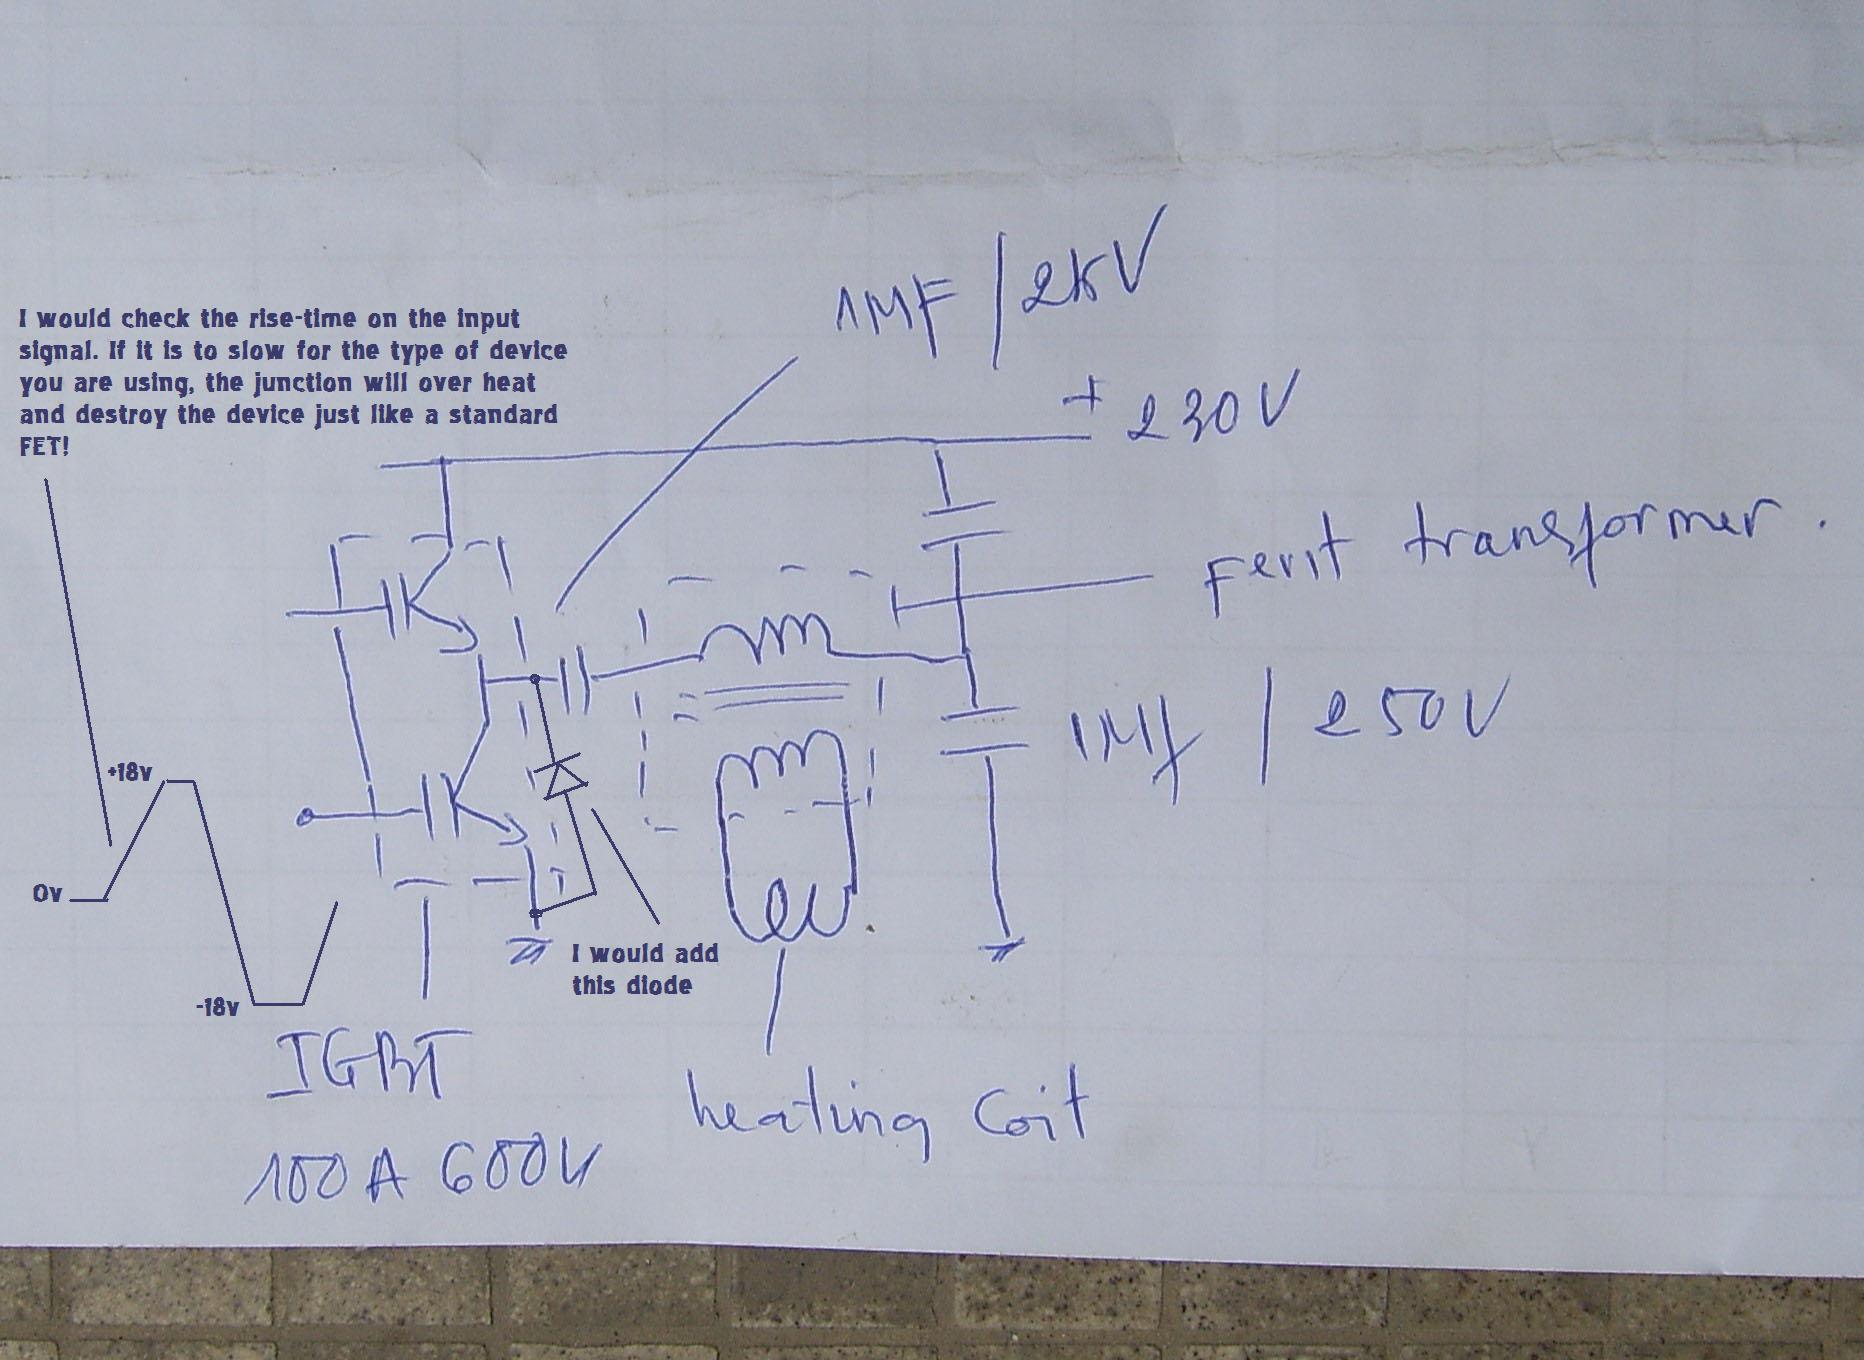 1MF / 2KV
I would check the rise-time on the input
signal. If it is to slow for the type of device
you are using, the junction will over heat
and destroy the device just like a standard
FET!
+ 230V
Ferit transformer.
1Mf / 250V
+18v
0v
-18v
I would add
this diode
IGBT
100A 600V
heating coil